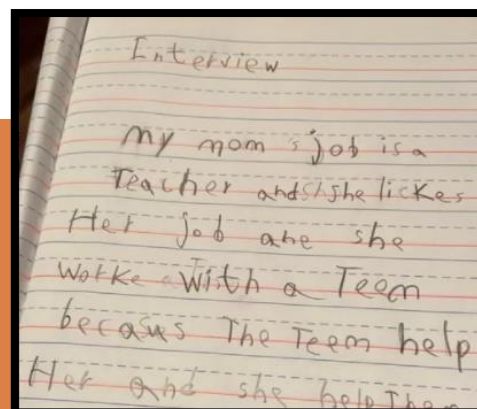 Interview
my mom's job is a
Teacher and she lickes
Her job ane she
worke with a Teem
becaus The Teem help
Her and she help Them